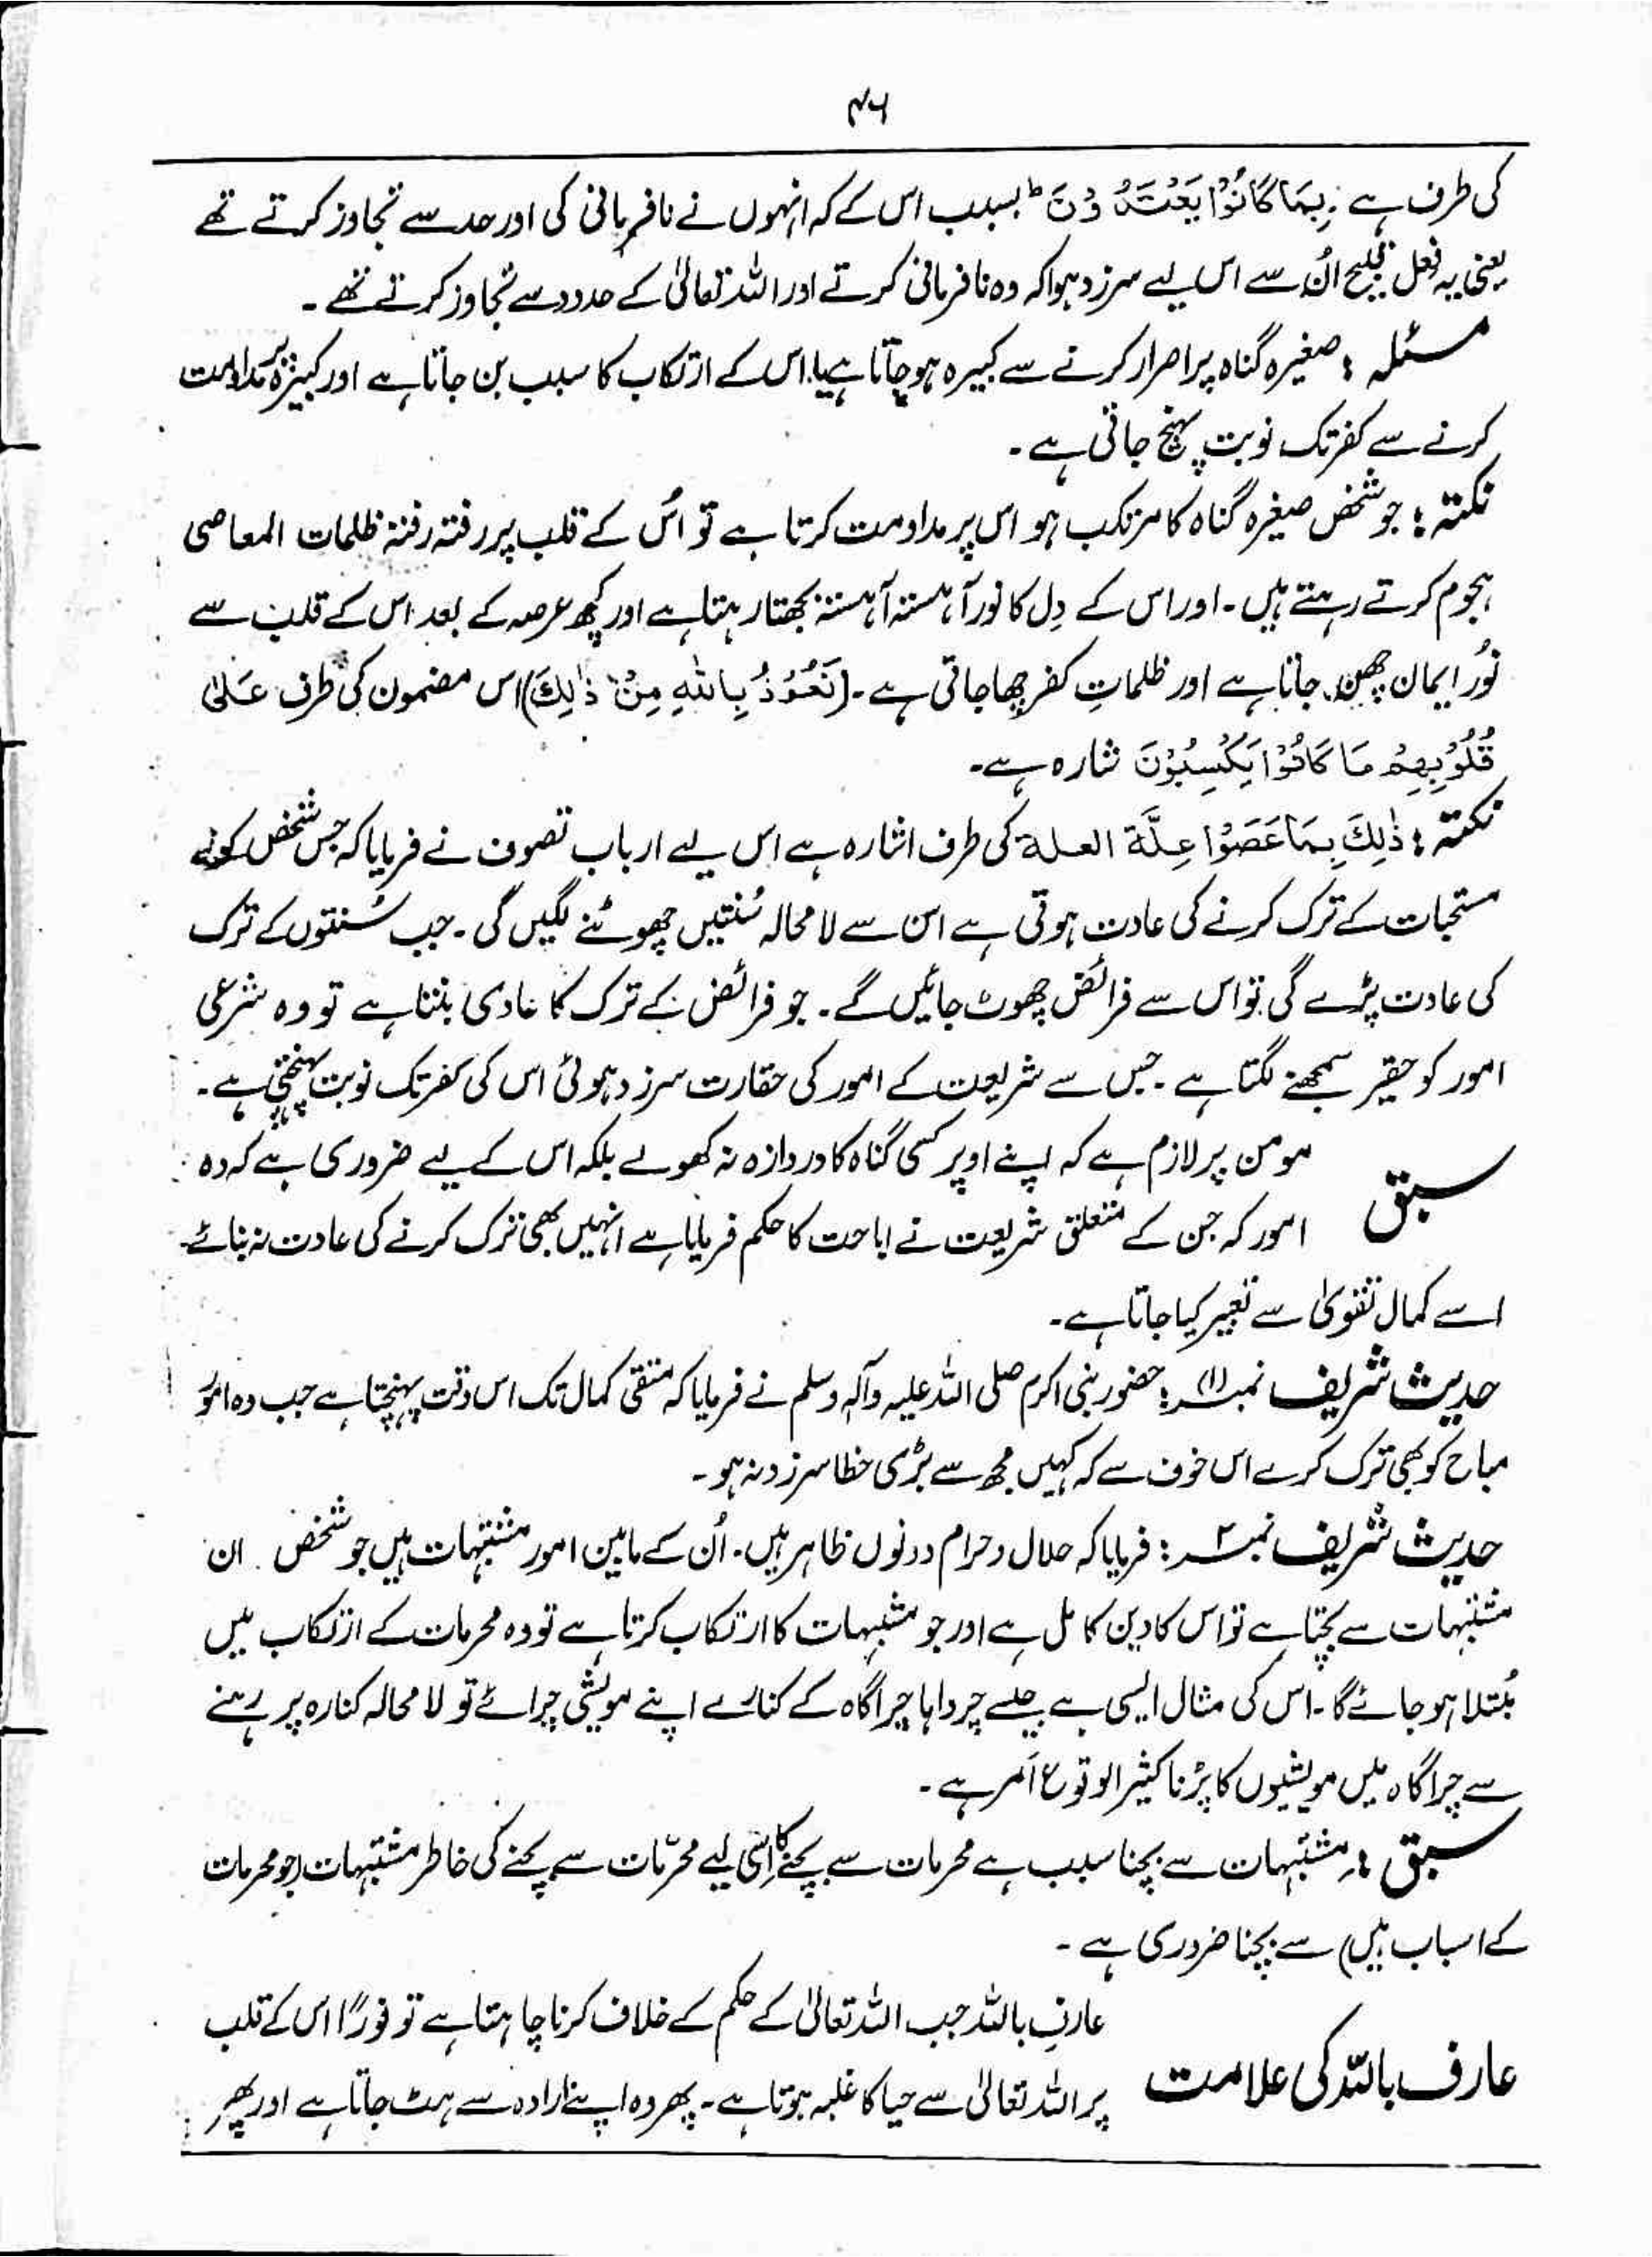 ۴۶
کی طرف ہے بِمَا كَانُوْا يَعْتَدُوْنَ ط بسبب اس کے کہ انہوں نے نافرمانی کی اور حد سے تجاوز کرتے تھے
یعنی یہ فعل قبیح اُن سے اس لیے سرزد ہوا کہ وہ نافرمانی کرتے اور اللہ تعالیٰ کے حدود سے تجاوز کرتے تھے ۔
مسئلہ : صغیرہ گناہ پر اصرار کرنے سے کبیرہ ہو جاتا ہے یا اس کے ارتکاب کا سبب بن جاتا ہے اور کبیرہ پر مداومت
کرنے سے کفر تک نوبت پہنچ جاتی ہے ۔
نکتہ : جو شخص صغیرہ گناہ کا مرتکب ہو اس پر مداومت کرتا ہے تو اُس کے قلب پر رفتہ رفتہ ظلمات المعاصی
ہجوم کرتے رہتے ہیں ۔ اور اس کے دِل کا نور آہستہ آہستہ بجھتا رہتا ہے اور کچھ عرصہ کے بعد اس کے قلب سے
نُور ایمان چھن جاتا ہے اور ظلماتِ کفر چھا جاتی ہے ۔ (نَعُوْذُ بِاللّٰهِ مِنْ ذٰلِكَ) اس مضمون کی طرف عَلٰى
قُلُوْبِهِمْ مَا كَانُوْا يَكْسِبُوْنَ شارہ ہے ۔
نکتہ : ذٰلِكَ بِمَا عَصَوْا عِلَّة العلة کی طرف اشارہ ہے اس لیے ارباب تصوف نے فرمایا کہ جس شخص کو
مستحبات کے ترک کرنے کی عادت ہوتی ہے اس سے لا محالہ سُنتیں چھوٹنے لگیں گی ۔ جب سُنتوں کے ترک
کی عادت پڑے گی تو اس سے فرائض چھوٹ جائیں گے ۔ جو فرائض کے ترک کا عادی بنتا ہے تو وہ شرعی
امور کو حقیر سمجھنے لگتا ہے ۔ جس سے شریعت کے امور کی حقارت سرزد ہوئی اس کی کفر تک نوبت پہنچتی ہے ۔
سبق مومن پر لازم ہے کہ اپنے اوپر کسی گناہ کا دروازہ نہ کھولے بلکہ اس کے لیے ضروری ہے کہ وہ
امور کہ جن کے متعلق شریعت نے اباحت کا حکم فرمایا ہے انہیں بھی ترک کرنے کی عادت نہ بنائے ۔
اسے کمال تقویٰ سے تعبیر کیا جاتا ہے ۔
حدیث شریف نمبر (۱) : حضور نبی اکرم صلی اللہ علیہ وآلہ وسلم نے فرمایا کہ متقی کمال تک اس وقت پہنچتا ہے جب وہ امور
مباح کو بھی ترک کرے اس خوف سے کہ کہیں مجھ سے بڑی خطا سرزد نہ ہو ۔
حدیث شریف نمبر ۲ : فرمایا کہ حلال و حرام دونوں ظاہر ہیں ۔ اُن کے مابین امور مشتبہات ہیں جو شخص ان
مشتبہات سے بچتا ہے تو اس کا دین کامل ہے اور جو مشتبہات کا ارتکاب کرتا ہے تو وہ محرمات کے ارتکاب میں
مُبتلا ہو جائے گا ۔ اس کی مثال ایسی ہے جیسے چرواہا چراگاہ کے کنارے اپنے مویشی چرائے تو لا محالہ کنارہ پر رہنے
سے چراگاہ میں مویشیوں کا پڑنا کثیر الوقوع اَمر ہے ۔
سبق : مشتبہات سے بچنا سبب ہے محرمات سے بچنے کا اسی لیے محرّمات سے بچنے کی خاطر مشتبہات (جو محرمات
کے اسباب ہیں) سے بچنا ضروری ہے ۔
عارف باللہ کی علامت عارفِ باللہ جب اللہ تعالیٰ کے حکم کے خلاف کرنا چاہتا ہے تو فوراً اس کے قلب
پر اللہ تعالیٰ سے حیا کا غلبہ ہوتا ہے ۔ پھر وہ اپنے ارادہ سے ہٹ جاتا ہے اور پھر